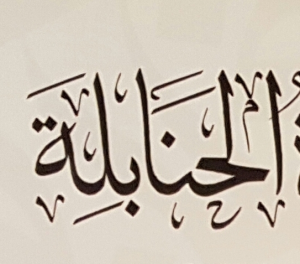 الحنابلة